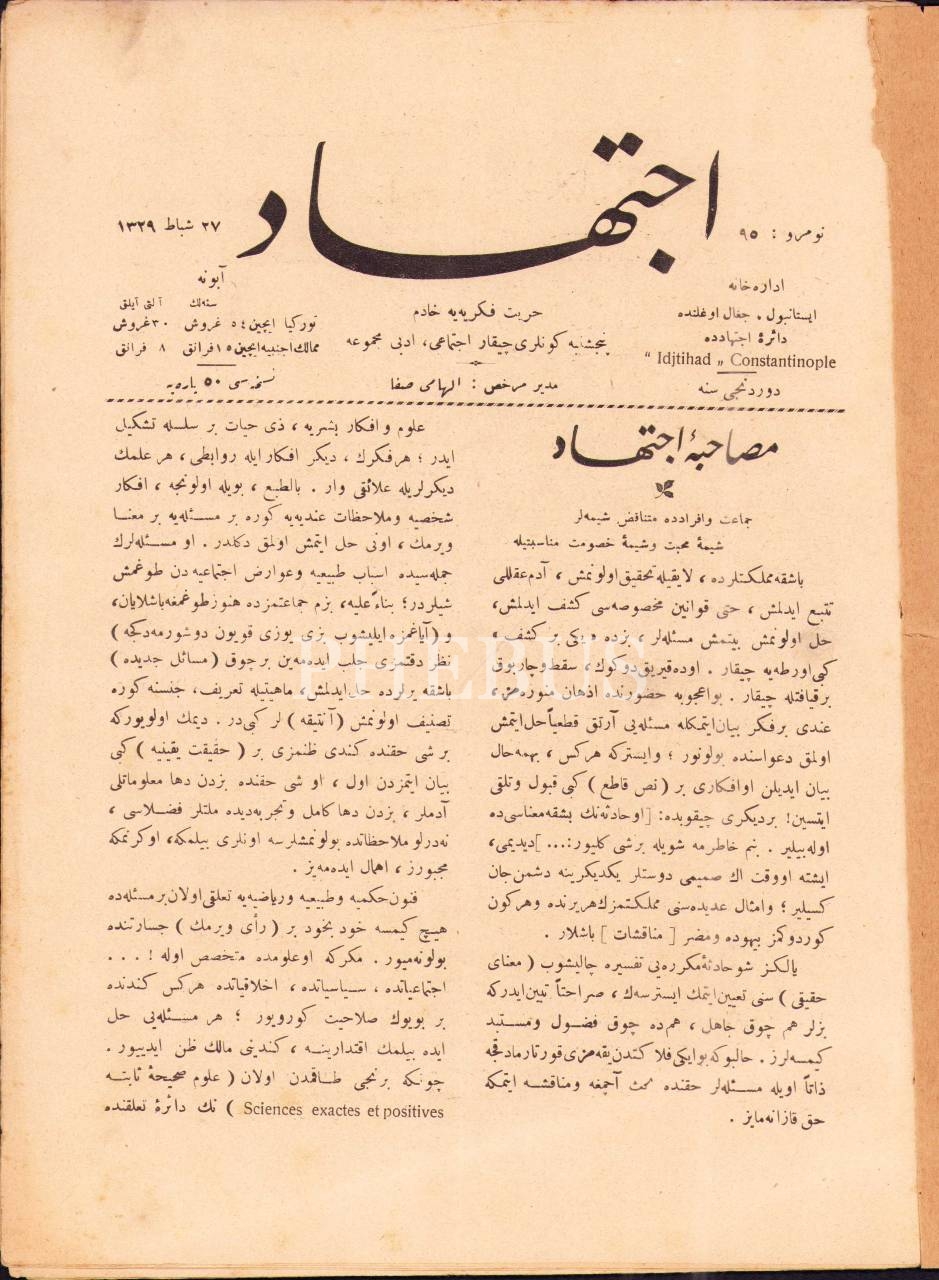 اجتهاد
نومرو : ٩٥
٢٧ شباط ١٣٢٩
اداره خانه
ایستانبول ، جغال اوغلنده
دائرهٔ اجتهادده
“ Idjtihad „ Constantinople
دوردنجی سنه
حریت فکریه‌یه خادم
پنجشنبه کونلری چیقار اجتماعی، ادبی مجموعه
مدیر مرخص : الهامی صفا
آبونه
سنه‌لك آلتی آیلق
تورکیا ایچین ٥٤ غروش ٣٠ غروش
ممالك اجنبیه ایچین ١٥ فرانق ٨ فرانق
نسخه‌سی ٥٠ پاره‌یه
مصاحبهٔ اجتهاد
جماعت و افرادده متناقض شیمه‌لر
شیمهٔ محبت و شیمهٔ خصومت مناسبتیله
باشقه مملکتلرده ، لایقیله تحقیق اولونمش ، آدم عقللی
تتبع ایدلمش ، حتی قوانین مخصوصه‌سی کشف ایدلمش،
حل اولونمش بیتمش مسئله‌لر ، بزده ویکی بر کشف ،
کبی اورطه‌یه چیقار . اوده قیریق دوکوك ، سقط و چارپوق
بر قیافتله چیقار . بو اعجوبه حضورنده اذهان منوره‌مز،
عندی بر فکر بیان ایتمکله مسئله‌یی آرتق قطعیاً حل ایتمش
اولمق دعواسنده بولونور ؛ و ایسترکه هرکس ، بهمه‌حال
بیان ایدیلن او افکاری بر ( نص قاطع ) کبی قبول و تلقی
ایتسین! بردیکری چیقوبده: [ او حادثه‌نك بشقه معناسی ده
اوله بیلیر . بنم خاطرمه شویله برشی کلیور:... ] دیدیمی،
ایشته او وقت اك صمیمی دوستلر یکدیکرینه دشمن جان
کسیلیر؛ و امثال عدیده‌سنی مملکتمزك هر یرنده و هرکون
کوردوکمز بیهوده و مضر [ مناقشات ] باشلار .
یالکز شو حادثهٔ مکرره‌یی تفسیره چالیشوب ( معنای
حقیقی ) سنی تعیین ایتمك ایسترسه‌ك ، صراحتاً تبین ایدرکه
بزلر هم چوق جاهل ، هم ده چوق فضول و مستبد
کیمسه‌لرز . حالبوکه بو ایکی فلاکتدن یقه‌مزی قورتارمادقجه
ذاتاً اویله مسئله‌لر حقنده بحث آچمغه و مناقشه ایتمکه
حق قازانه‌مایز .
علوم و افکار بشریه ، ذی حیات بر سلسله تشکیل
ایدر ؛ هر فکرك ، دیکر افکار ایله روابطی ، هر علمك
دیکرلریله علائقی وار . بالطبع ، بویله اولونجه ، افکار
شخصیه و ملاحظات عندیه‌یه کوره بر مسئله‌یه بر معنا
ویرمك ، اونی حل ایتمش اولمق دکلدر . او مسئله‌لرك
جمله‌سیده اسباب طبیعیه و عوارض اجتماعیه‌دن طوغمش
شیلردر؛ بناءً علیه، بزم جماعتمزده هنوز طوغمغه باشلایان،
و ( آیاغمزه ایلیشوب بزی یوزی قویون دوشورمه‌دکجه )
نظر دقتمزی جلب ایده‌مه‌ین بر چوق ( مسائل جدیده )
باشقه یرلرده حل ایدلمش، ماهیتیله تعریف، جنسنه کوره
تصنیف اولونمش ( آنتیقه ) لر کبی‌در . دیمك اولیورکه
بر شی حقنده کندی ظنمزی بر ( حقیقت یقینیه ) کبی
بیان ایتمزدن اول ، او شی حقنده بزدن دها معلوماتلی
آدملر ، بزدن دها کامل و تجربه‌دیده ملتلر فضلاسی ،
نه‌درلو ملاحظاتده بولونمشلرسه اونلری بیلمکه، اوکرنمکه
مجبورز ، اهمال ایده‌مه‌یز .
فنون حکمیه و طبیعیه و ریاضیه‌یه تعلقی اولان بر مسئله‌ده
هیچ کیمسه خود بخود بر ( رأی ویرمك ) جسارتنده
بولونه‌میور . مکرکه او علومده متخصص اوله ! . . .
اجتماعیاتده ، سیاسیاتده ، اخلاقیاتده هرکس کندنده
بر بویوك صلاحیت کورویور ؛ هر مسئله‌یی حل
ایده بیلمك اقتدارینه ، کندینی مالك ظن ایدییور .
چونکه برنجی طاقمدن اولان ( علوم صحیحهٔ ثابته
Sciences exactes et positives ) نك دائرهٔ تعلقنده
PHEBUS